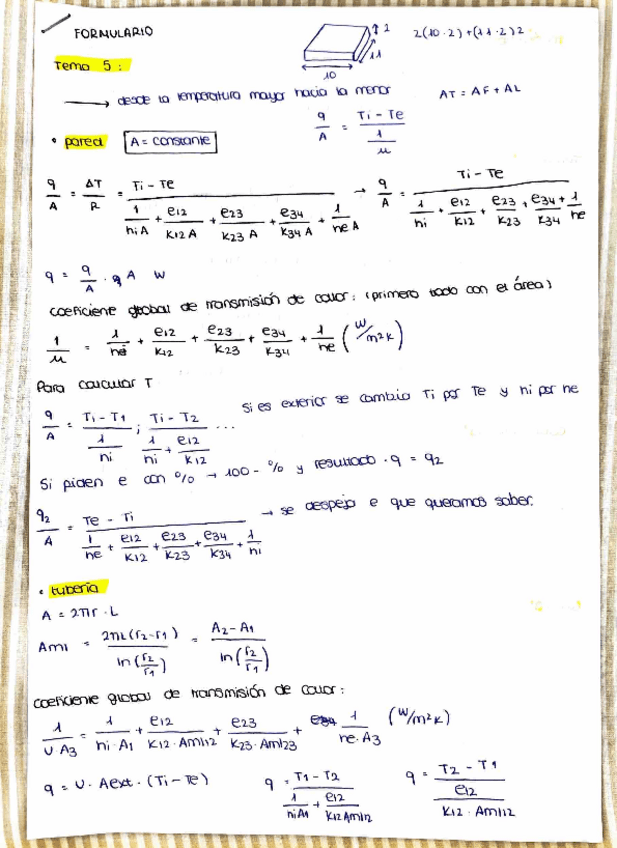 FORMULARIO
2
11
10
2(10·2)+(11·2)2
Tema 5:
→ desde la temperatura mayor hacia la menor
AT = AF + AL
• pared A = constante
q/A = (Ti - Te)/(1/u)
q/A = ΔT/R = (Ti - Te)/(1/(hi A) + e12/(K12 A) + e23/(K23 A) + e34/(K34 A) + 1/(he A)) → q/A = (Ti - Te)/(1/hi + e12/K12 + e23/K23 + e34/K34 + 1/he)
q = q/A · A W
coeficiente global de transmisión de calor: (primero todo con el área)
1/u = 1/hi + e12/K12 + e23/K23 + e34/K34 + 1/he (W/m²K)
Para calcular T
q/A = (Ti - T1)/(1/hi) ; (Ti - T2)/(1/hi + e12/K12) ...
Si es exterior se cambia Ti por Te y hi por he
Si piden e con % → 100 - % y resultado · q = q2
q2/A = (Te - Ti)/(1/he + e12/K12 + e23/K23 + e34/K34 + 1/hi) → se despeja e que queramos saber.
• tubería
A = 2πr · L
Aml = 2πL(r2-r1)/ln(r2/r1) = (A2 - A1)/ln(r2/r1)
coeficiente global de transmisión de calor:
1/(U·A3) = 1/(hi·A1) + e12/(K12·Aml12) + e23/(K23·Aml23) + 1/(he·A3) (W/m²K)
q = U · Aext · (Ti - Te)
q = (T1 - T2)/(1/(hiA1) + e12/(K12Aml12))
q = (T2 - T1)/(e12/(K12 · Aml12))